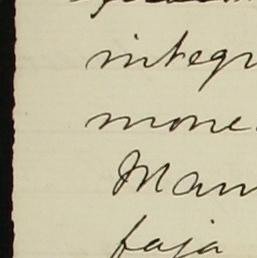 integr
mone
Man
faja